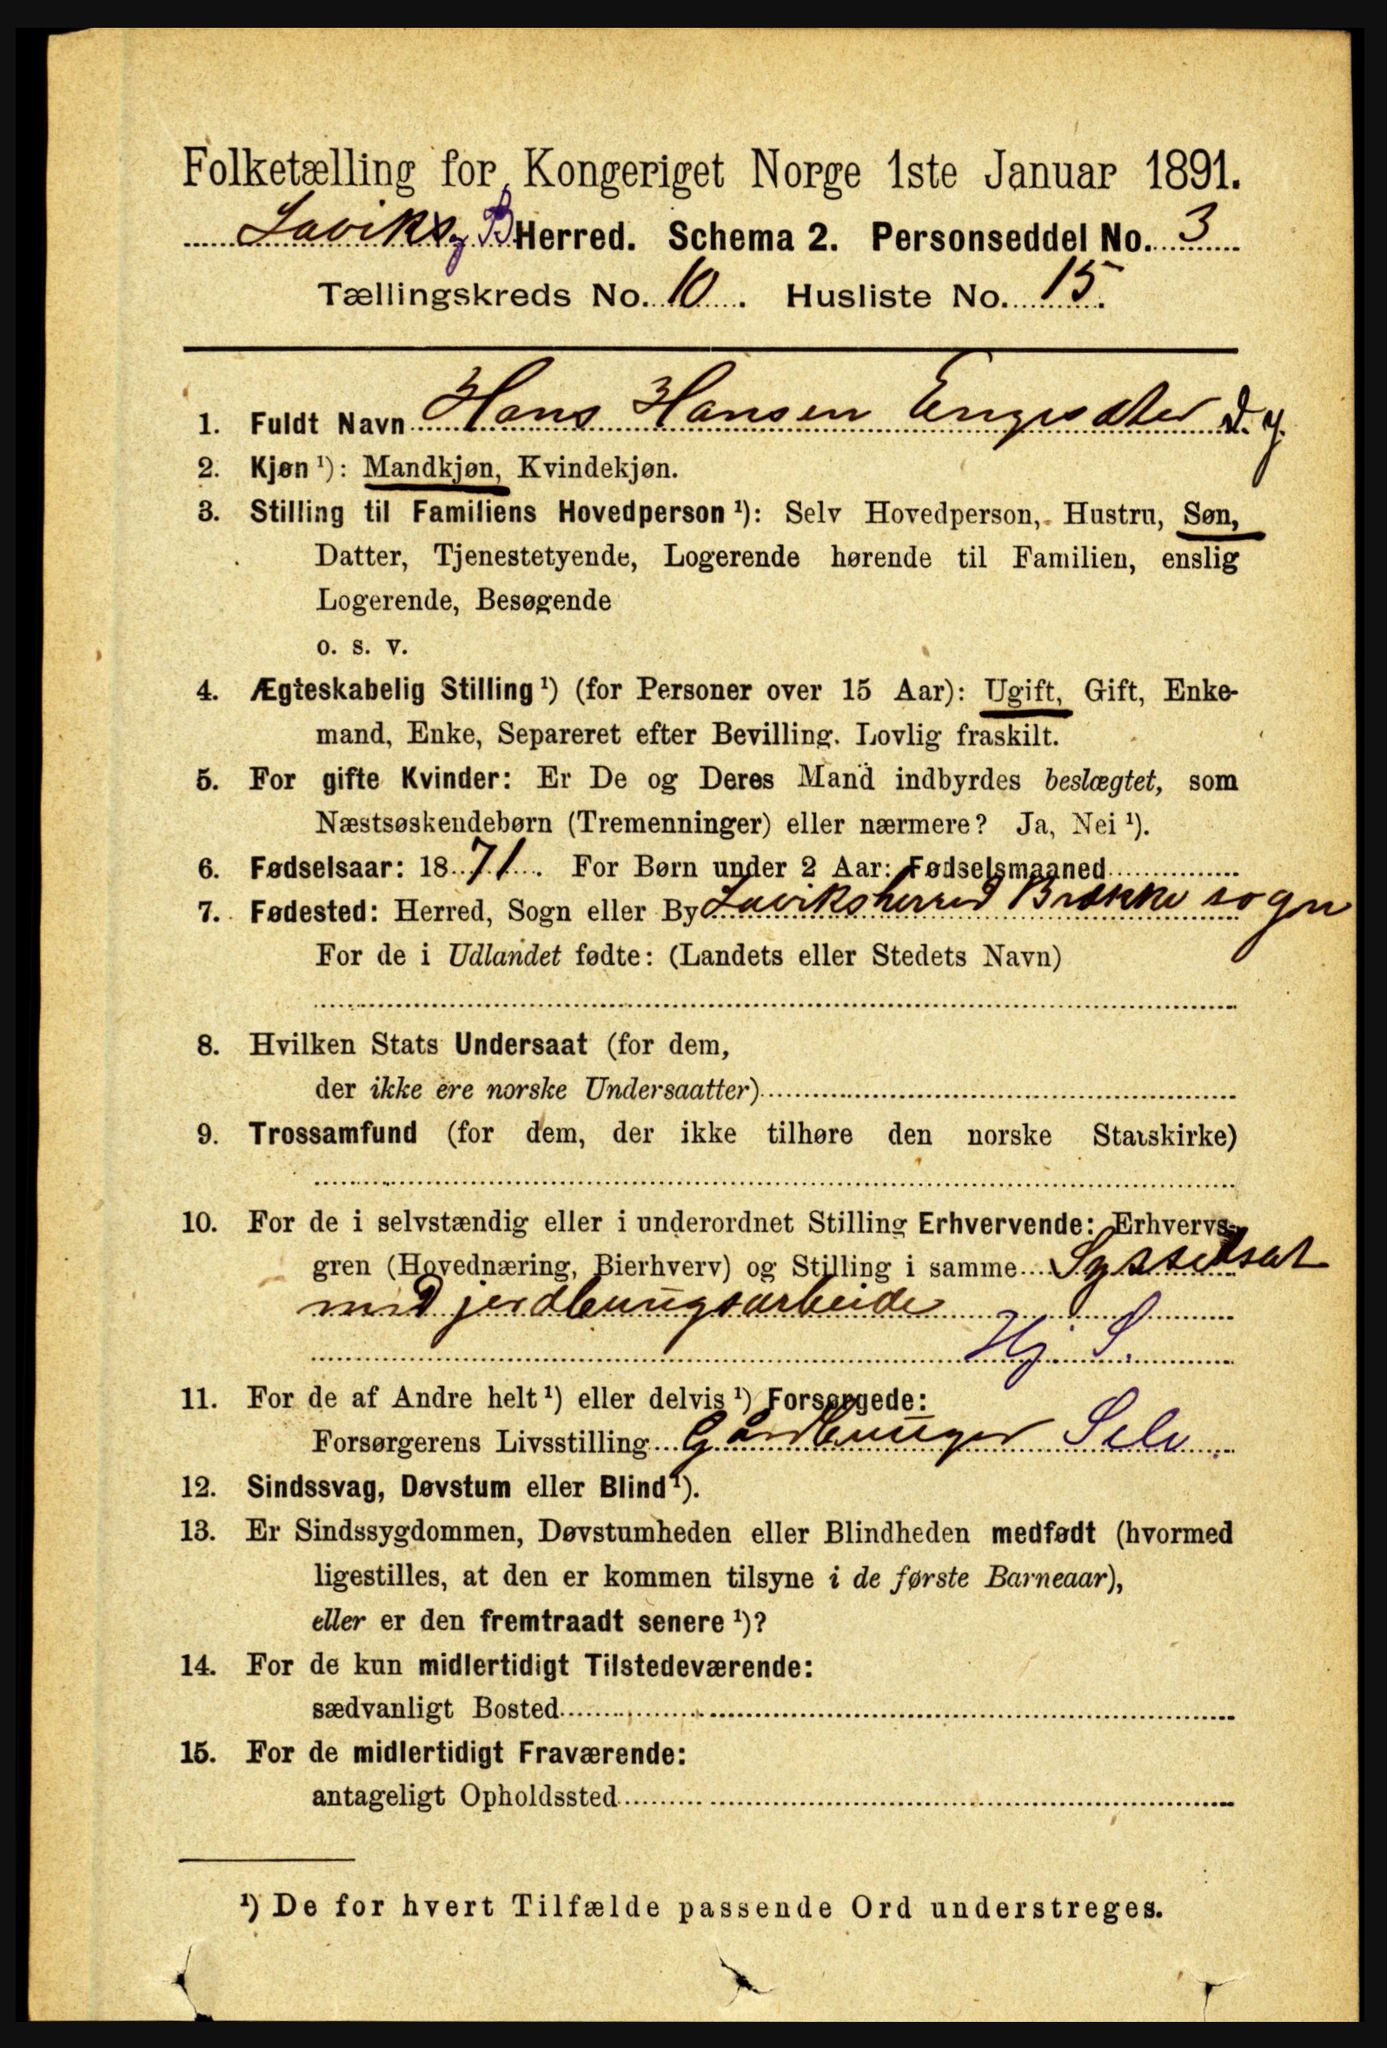 Folketælling for Kongeriget Norge 1ste Januar 1891.
Laviks og B. Herred. Schema 2. Personseddel No. 3
Tællingskreds No. 10. Husliste No. 15.
1. Fuldt Navn Hans Hansen Engesæter d. y.
2. Kjøn ¹): Mandkjøn, Kvindekjøn.
3. Stilling til Familiens Hovedperson ¹): Selv Hovedperson, Hustru, Søn,
Datter, Tjenestetyende, Logerende hørende til Familien, enslig
Logerende, Besøgende
o. s. v.
4. Ægteskabelig Stilling ¹) (for Personer over 15 Aar): Ugift, Gift, Enke-
mand, Enke, Separeret efter Bevilling. Lovlig fraskilt.
5. For gifte Kvinder: Er De og Deres Mand indbyrdes beslægtet, som
Næstsøskendebørn (Tremenninger) eller nærmere? Ja, Nei ¹).
6. Fødselsaar: 1871. For Børn under 2 Aar: Fødselsmaaned
7. Fødested: Herred, Sogn eller By Laviksherred Brække sogn
For de i Udlandet fødte: (Landets eller Stedets Navn)
8. Hvilken Stats Undersaat (for dem,
der ikke ere norske Undersaatter)
9. Trossamfund (for dem, der ikke tilhøre den norske Statskirke)
10. For de i selvstændig eller i underordnet Stilling Erhvervende: Erhvervs-
gren (Hovednæring, Bierhverv) og Stilling i samme Sysselsat
med jordbrugsarbeide
Hj. S.
11. For de af Andre helt ¹) eller delvis ¹) Forsørgede:
Forsørgerens Livsstilling Gårdbruger Selv.
12. Sindssvag, Døvstum eller Blind ¹).
13. Er Sindssygdommen, Døvstumheden eller Blindheden medfødt (hvormed
ligestilles, at den er kommen tilsyne i de første Barneaar),
eller er den fremtraadt senere ¹)?
14. For de kun midlertidigt Tilstedeværende:
sædvanligt Bosted
15. For de midlertidigt Fraværende:
antageligt Opholdssted
¹) De for hvert Tilfælde passende Ord understreges.